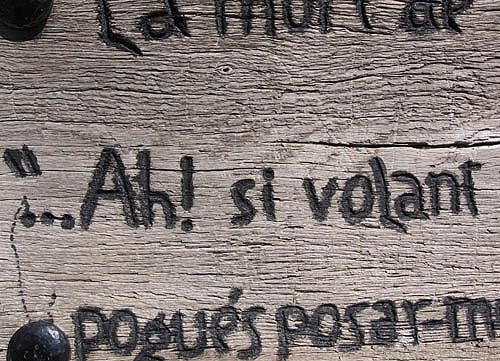 La mort de
"...Ah! si volant
pogués posar-m